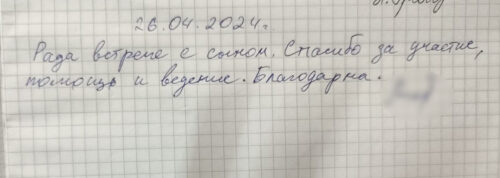 26.04.2024г.
Рада встрече с сыном. Спасибо за участие,
помощь и ведение. Благодарна.